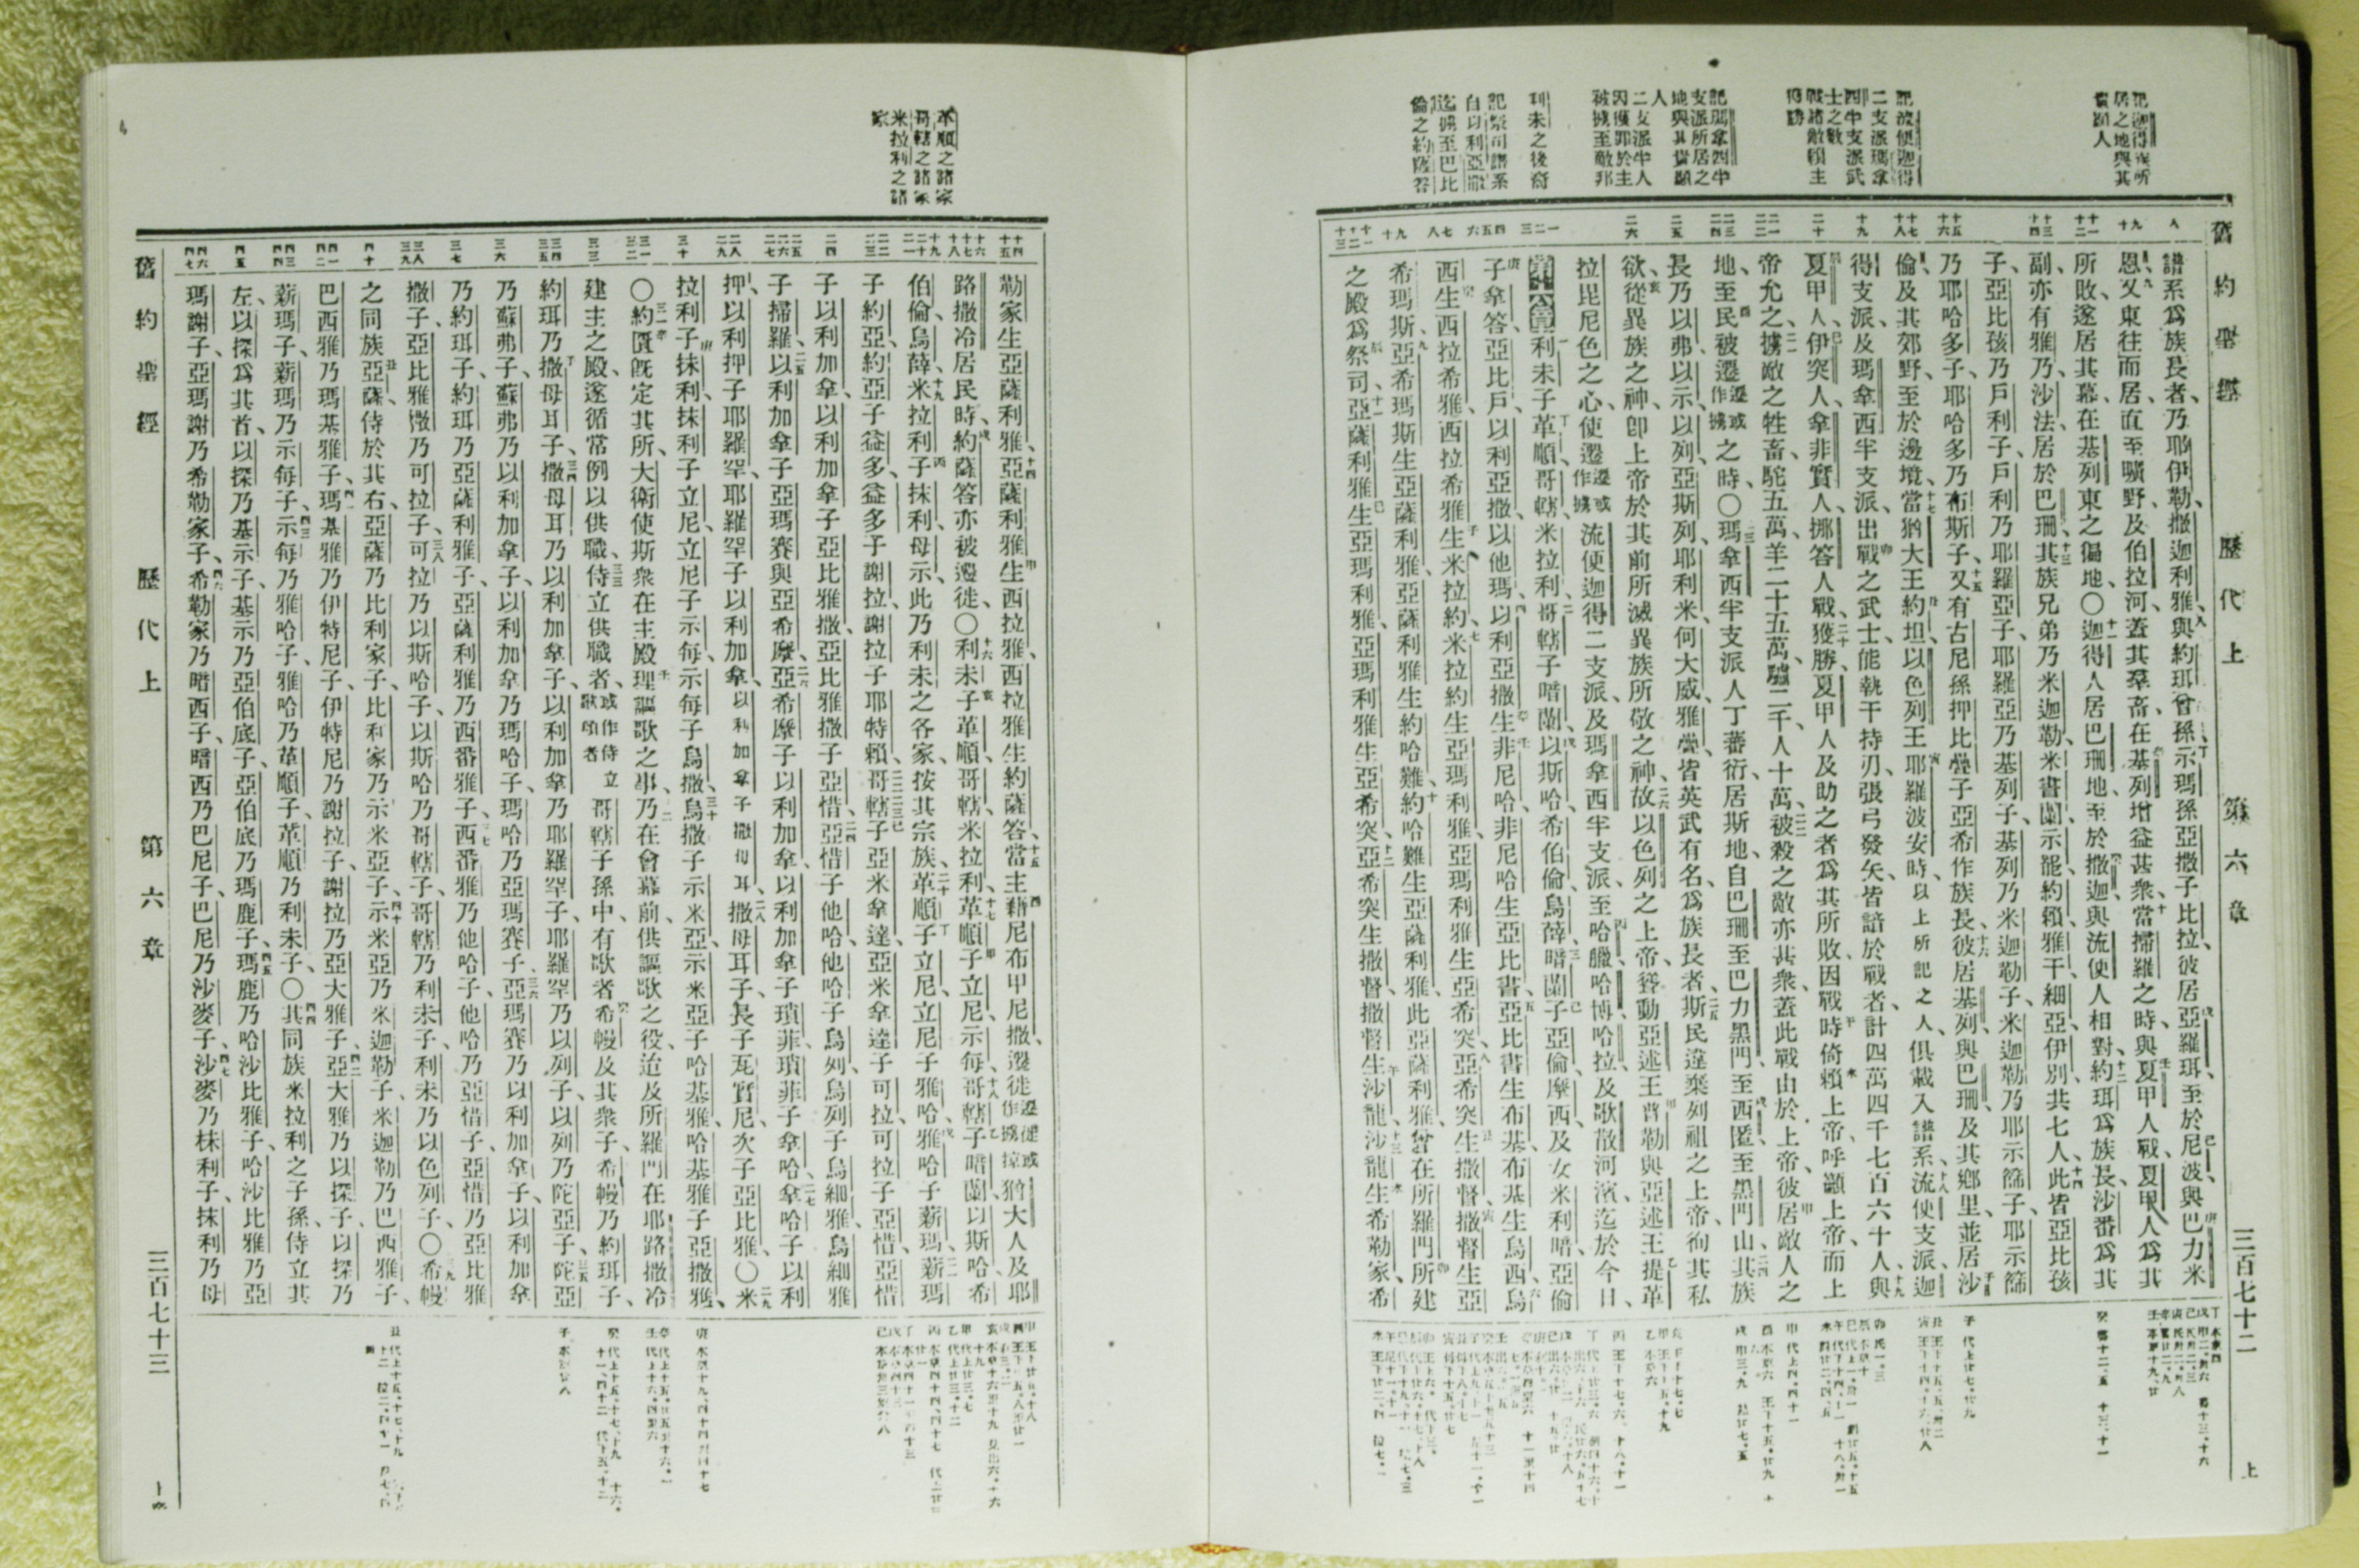 舊約聖經 歷代上 第六章 三百七十二 上
記迦得族所
居之地與其
貴顯人
記流便迦得
二支派瑪拿
西半支派武
士之數
戰諸敵賴主
得勝
記瑪拿西半
支派所居之
地與其貴顯
人
二支派半人
因獲罪於主
被擄至敵邦
利未之後裔
記祭司諸系
自以利亞撒
迄擄至巴比
倫之約薩答
譜系爲族長者、乃耶伊勒、撒迦利雅、與約珥曾孫示瑪孫亞撒子比拉、彼居亞羅珥、至於尼波與巴力米
恩、又東往而居、直至曠野、及伯拉河、蓋其羣畜在基列增益甚衆、當掃羅之時、與夏甲人戰、夏甲人爲其
所敗、遂居其幕、在基列東之徧地、〇迦得人居巴珊地、至於撒迦、與流便人相對、約珥爲族長、沙番爲其
副、亦有雅乃沙法居於巴珊、其族兄弟乃米迦勒、米書蘭、示龍、約賴、雅干、細亞、伊別、共七人、此皆亞比孩
子、亞比孩乃戶利子、戶利乃耶羅亞子、耶羅亞乃基列子、基列乃米迦勒子、米迦勒乃耶示篩子、耶示篩
乃耶哈多子、耶哈多乃布斯子、又有古尼孫押比疊子亞希作族長、彼居基列、與巴珊、及其鄉里、並居沙
倫、及其郊野、至於邊境、當猶大王約坦、以色列王耶羅波安時、以上所記之人、俱載入譜系、流便支派、迦
得支派、及瑪拿西半支派、出戰之武士、能執干持刃、張弓發矢、皆諳於戰者、計四萬四千七百六十人、與
夏甲人、伊突人、拿非實人、挪答人戰、獲勝、夏甲人及助之者爲其所敗、因戰時倚賴上帝、呼籲上帝、而上
帝允之、擄敵之牲畜、駝五萬、羊二十五萬、驢二千、人十萬、被殺之敵亦甚衆、蓋此戰由於上帝、彼居敵人之
地、至民被遷遷或作擄之時、〇瑪拿西半支派人丁蕃衍、居斯地、自巴珊至巴力黑門、至西匿、至黑門山、其族
長乃以弗、以示、以列、亞斯列、耶利米、何大威、雅疊、皆英武有名、爲族長者、斯民違棄列祖之上帝、徇其私
欲、從異族之神、卽上帝於其前所滅異族所敬之神、故以色列之上帝、聳動亞述王普勒、與亞述王提革
拉毘尼色之心、使遷遷或作擄流便迦得二支派、及瑪拿西半支派、至哈臘、哈博、哈拉、及歌散河濱、迄於今日、
第六章 利未子革順、哥轄、米拉利、哥轄子暗蘭、以斯哈、希伯倫、烏薛、暗蘭子亞倫、摩西、及女米利暗、亞倫
子拿答、亞比戶、以利亞撒、以他瑪、以利亞撒生非尼哈、非尼哈生亞比書、亞比書生布基、布基生烏西、烏
西生西拉希雅、西拉希雅生米拉約、米拉約生亞瑪利雅、亞瑪利雅生亞希突、亞希突生撒督、撒督生亞
希瑪斯、亞希瑪斯生亞薩利雅、亞薩利雅生約哈難、約哈難生亞薩利雅、此亞薩利雅嘗在所羅門所建
之殿爲祭司、亞薩利雅生亞瑪利雅、亞瑪利雅生亞希突、亞希突生撒督、撒督生沙龍、沙龍生希勒家、希
革順之諸家
哥轄之諸家
米拉利之諸
家
勒家生亞薩利雅、亞薩利雅生西拉雅、西拉雅生約薩答、當主藉尼布甲尼撒、遷徙遷徙或作擄掠猶大人及耶
路撒冷居民時、約薩答亦被遷徙、〇利未子革順、哥轄、米拉利、革順子立尼、示每、哥轄子暗蘭、以斯哈、希
伯倫、烏薛、米拉利子抹利、母示、此乃利未之各家、按其宗族、革順子立尼、立尼子雅哈、雅哈子薪瑪、薪瑪
子約亞、約亞子益多、益多子謝拉、謝拉子耶特賴、哥轄子亞米拿達、亞米拿達子可拉、可拉子亞惜、亞惜
子以利加拿、以利加拿子亞比雅撒、亞比雅撒子亞惜、亞惜子他哈、他哈子烏列、烏列子烏細雅、烏細雅
子掃羅、以利加拿子亞瑪賽與亞希摩、亞希摩子以利加拿、以利加拿子瑣菲、瑣菲子拿哈、拿哈子以利
押、以利押子耶羅罕、耶羅罕子以利加拿、以利加拿子撒母耳、撒母耳子、長子瓦實尼、次子亞比雅、〇米
拉利子抹利、抹利子立尼、立尼子示每、示每子烏撒、烏撒子示米亞、示米亞子哈基雅、哈基雅子亞撒雅、
〇約匱旣定其所、大衛使斯衆在主殿理謳歌之事、乃在會幕前、供謳歌之役、迨及所羅門在耶路撒冷
建主之殿、遂循常例以供職、侍立供職者、或作侍立歌頌者哥轄子孫中、有歌者希幔及其衆子、希幔乃約珥子、
約珥乃撒母耳子、撒母耳乃以利加拿子、以利加拿乃耶羅罕子、耶羅罕乃以列子、以列乃陀亞子、陀亞
乃蘇弗子、蘇弗乃以利加拿子、以利加拿乃瑪哈子、瑪哈乃亞瑪賽子、亞瑪賽乃以利加拿子、以利加拿
乃約珥子、約珥乃亞薩利雅子、亞薩利雅乃西番雅子、西番雅乃他哈子、他哈乃亞惜子、亞惜乃亞比雅
撒子、亞比雅撒乃可拉子、可拉乃以斯哈子、以斯哈乃哥轄子、哥轄乃利未子、利未乃以色列子、〇希幔
之同族亞薩、侍於其右、亞薩乃比利家子、比利家乃示米亞子、示米亞乃米迦勒子、米迦勒乃巴西雅子、
巴西雅乃瑪基雅子、瑪基雅乃伊特尼子、伊特尼乃謝拉子、謝拉乃亞大雅子、亞大雅乃以探子、以探乃
薪瑪子、薪瑪乃示每子、示每乃雅哈子、雅哈乃革順子、革順乃利未子、〇其同族米拉利之子孫、侍立其
左、以探爲其首、以探乃基示子、基示乃亞伯底子、亞伯底乃瑪鹿子、瑪鹿乃哈沙比雅子、哈沙比雅乃亞
瑪謝子、亞瑪謝乃希勒家子、希勒家乃暗西子、暗西乃巴尼子、巴尼乃沙麥子、沙麥乃抹利子、抹利乃母
舊約聖經 歷代上 第六章 三百七十三